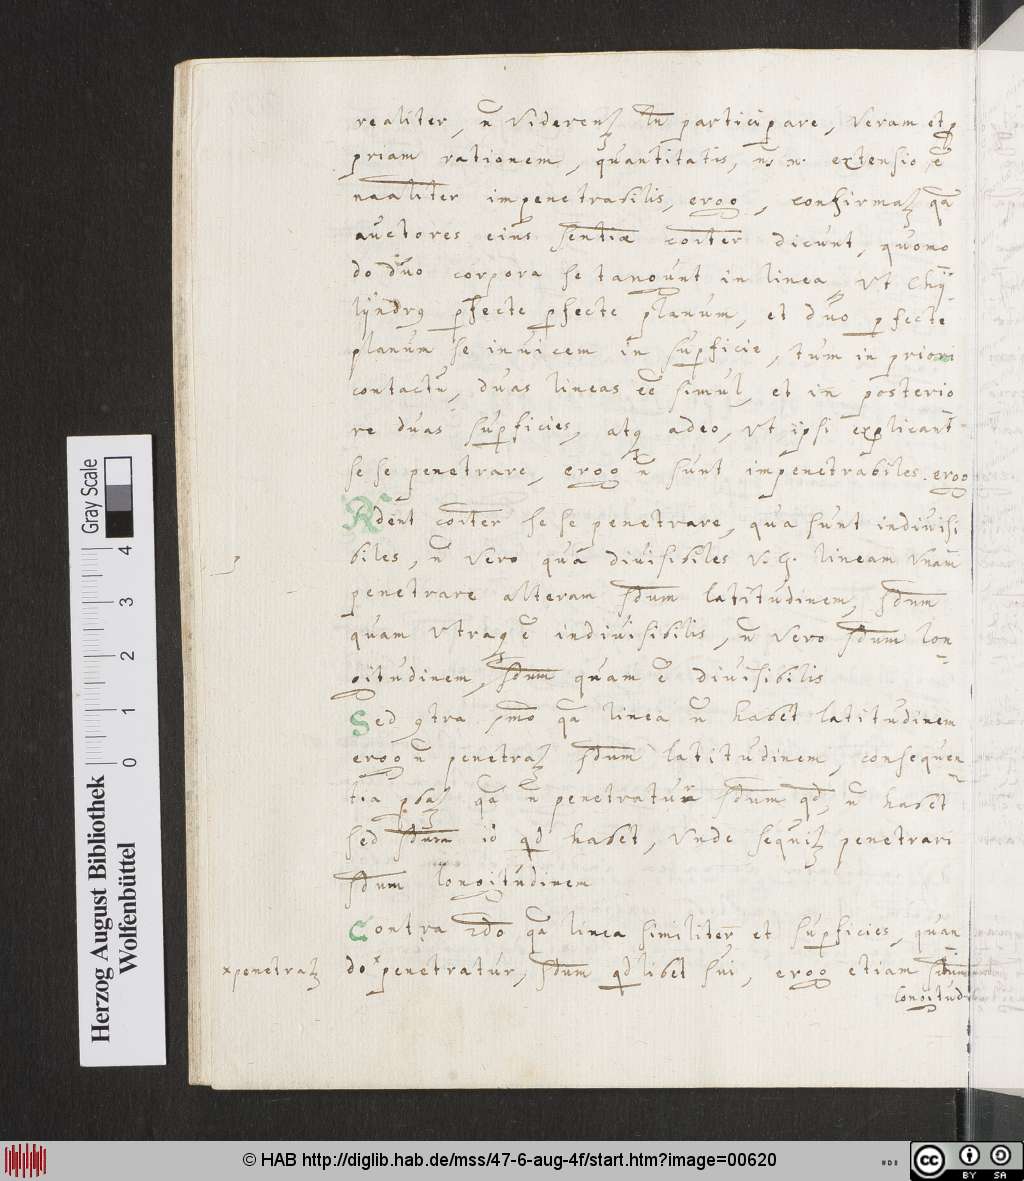 realiter, n̄ viderenꝫ tn̄ participare, veram et ꝓ
priam rationem, quantitatis, n. extensio ē
naaliter impenetrabilis, ergo, confirmaꝫ qa
auctores eius sentiæ coiter dicunt, quomo
do duo corpora se tangunt in linea, vt Chÿ-
lÿndrꝯ ꝑfecte ꝑfecte planum, et duo ꝑfecte
planum se inuicem in suꝑficie, tum in priori
contactu, duas lineas eē simul, et in posterio
re duas suꝑficies, atqꝫ adeo, vt ipsi explicant
se se penetrare, ergo n̄ sunt impenetrabiles. ergo
Rdent coiter se se penetrare, qua sunt indiuisi
biles, n̄ vero qua diuisibiles v. g. lineam vnam
penetrare alteram sdum latitudinem, sdum
quam vtraqꝫ ē indiuisibilis, n̄ vero sdum lon-
gitudinem, sdum quam ē diuisibilis
Sed ꝯtra pmo qa linea n̄ habet latitudinem
ergo n̄ penetraꝫ sdum latitudinem, consequen-
tia ꝓbaꝫ qa n̄ penetratur sdum qd, n̄ habet
sed sdum id qd habet, vnde sequiꝫ penetrari
sdum longitudinem
Contra 2do qa linea similiter et suꝑficies, quan-
do ˣpenetratur, sdum qdlibet sui, ergo etiam sdum
xpenetraꝫ
longitud
Gray Scale
0 1 2 3 4
Herzog August Bibliothek
Wolfenbüttel
© HAB http://diglib.hab.de/mss/47-6-aug-4f/start.htm?image=00620
cc BY SA